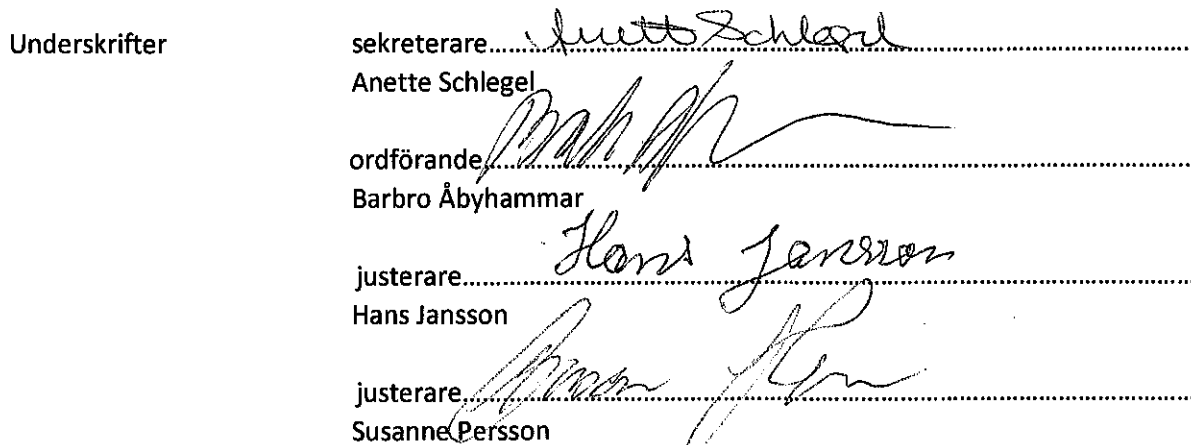 Underskrifter sekreterare.... Anette Schlegel
Anette Schlegel
ordförande....
Barbro Åbyhammar
justerare.... Hans Jansson
Hans Jansson
justerare....
Susanne Persson